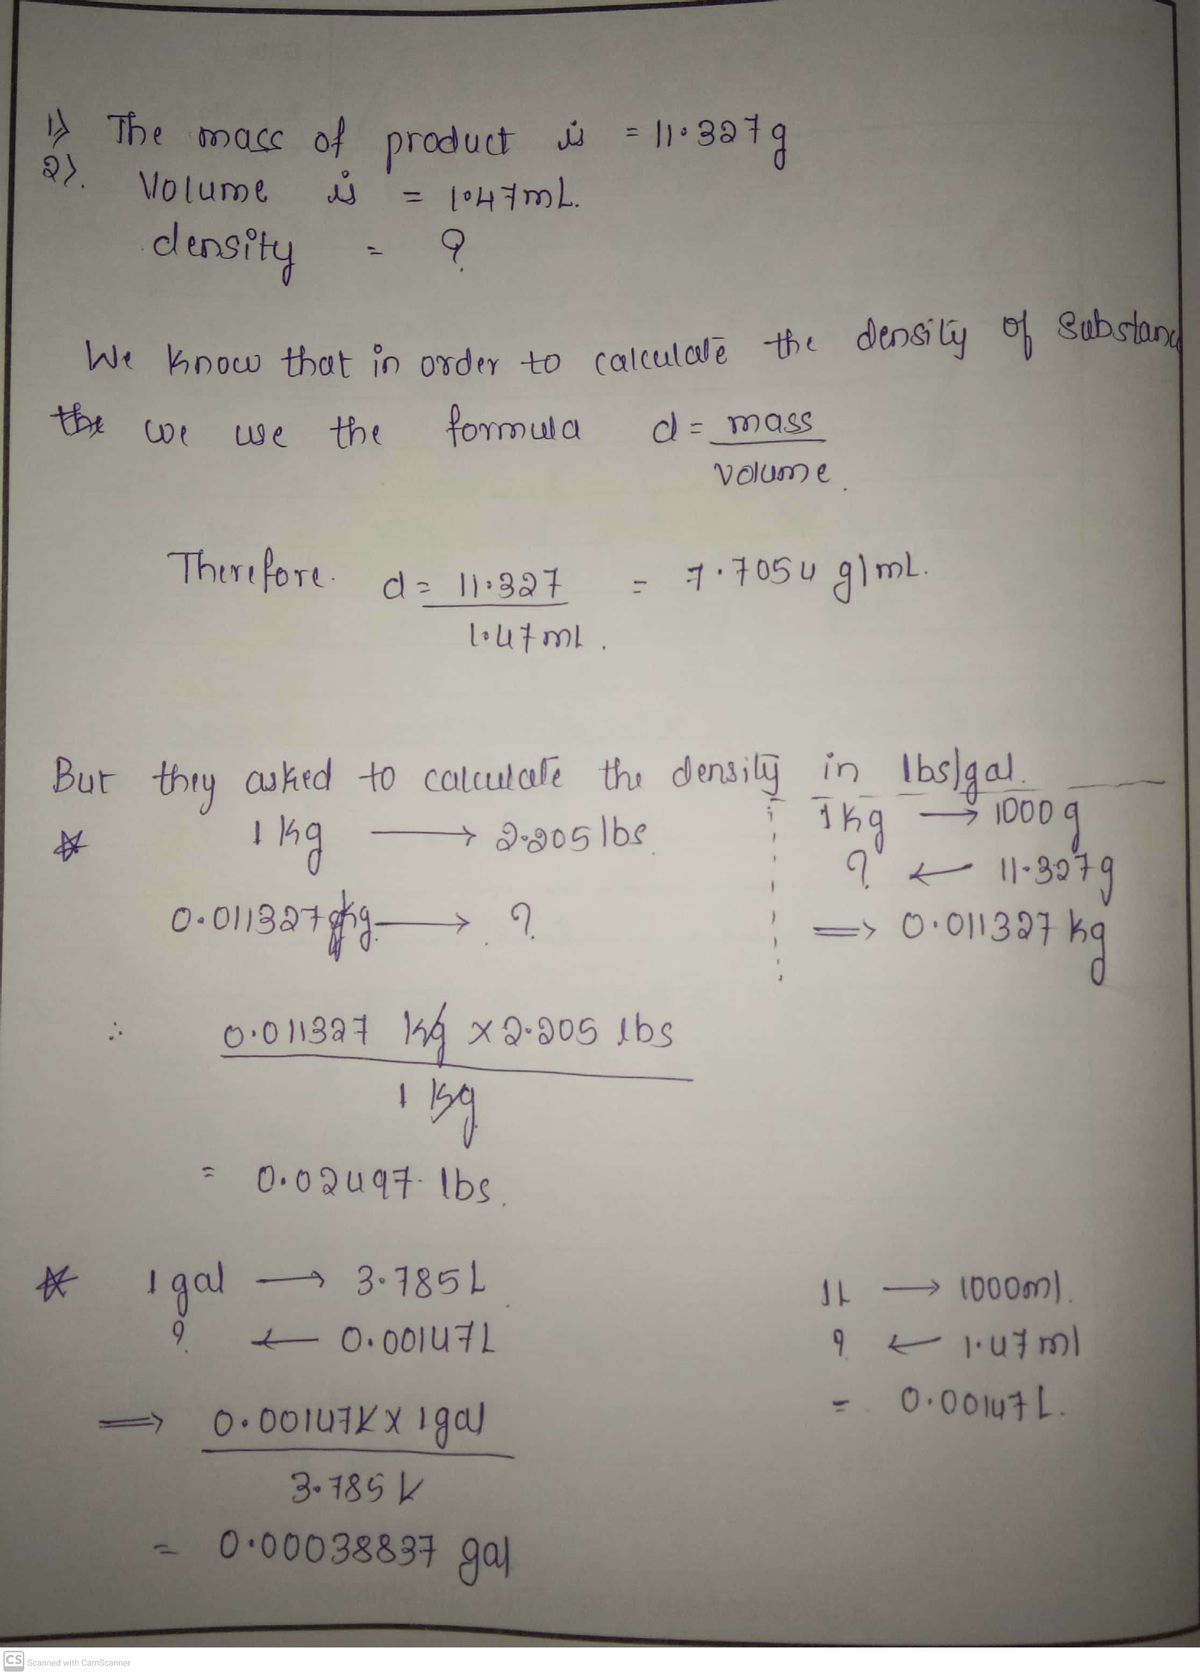 1) The mass of product is = 11.327g
2). Volume is = 1.47mL.
density = ?
We know that in order to calculate the density of Substanc
the we use the formula d = mass
volume.
Therefore. d = 11.327 = 7.7054 g/mL.
1.47 mL.
But they asked to calculate the density in lbs/gal.
1 kg → 2.205 lbs. 1kg → 1000 g
? ← 11.327g
0.011327 kg. → ? ⇒ 0.011327 kg
∴ 0.011327 kg x 2.205 lbs
1 kg
= 0.02497 lbs.
1 gal → 3.785L 1L → 1000ml.
? ← 0.00147L ? ← 1.47 ml
⇒ 0.00147L x 1gal = 0.00147 L.
3.785 L
= 0.00038837 gal
CS Scanned with CamScanner